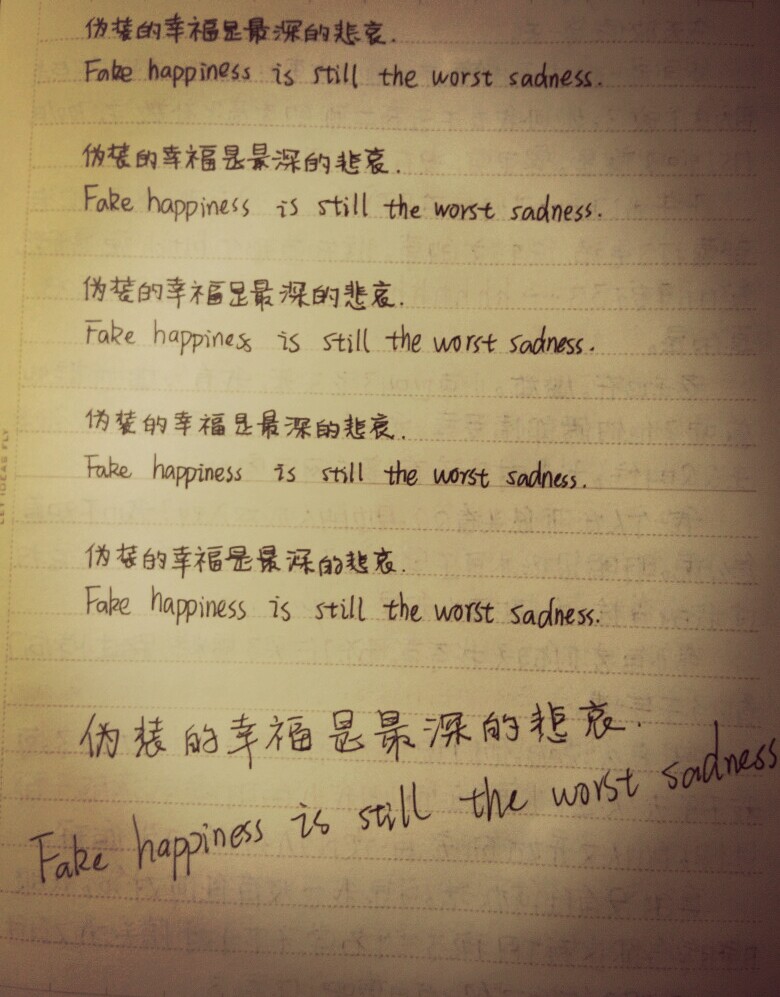 伪装的幸福是最深的悲哀.
Fake happiness is still the worst sadness.
伪装的幸福是最深的悲哀.
Fake happiness is still the worst sadness.
伪装的幸福是最深的悲哀.
Fake happiness is still the worst sadness.
伪装的幸福是最深的悲哀.
Fake happiness is still the worst sadness.
伪装的幸福是最深的悲哀.
Fake happiness is still the worst sadness.
伪装的幸福是最深的悲哀.
Fake happiness is still the worst sadness
LET IDEAS FLY